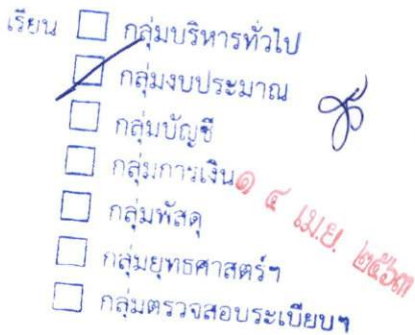 เรียน ☐ กลุ่มบริหารทั่วไป
☐ กลุ่มงบประมาณ
☐ กลุ่มบัญชี
☐ กลุ่มการเงิน
☐ กลุ่มพัสดุ
☐ กลุ่มยุทธศาสตร์ฯ
☐ กลุ่มตรวจสอบระเบียบฯ
๑ ๔ เม.ย. ๒๕๖๓